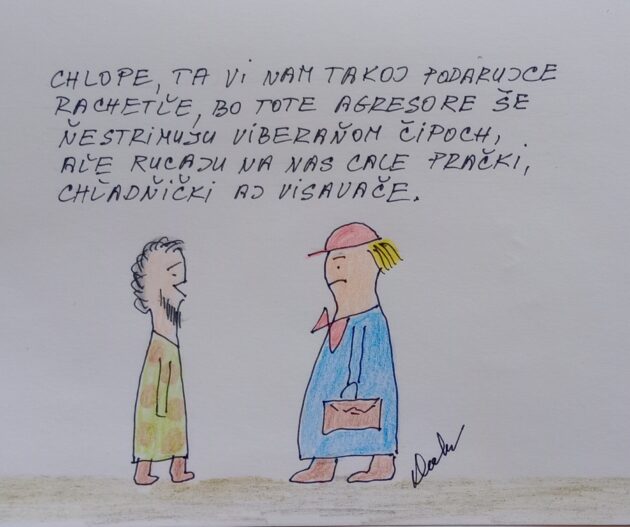 CHLOPE, TA VI NAM TAKOJ PODARUJCE
RACHETĽE, BO TOTE AGRESORE ŠE
ŇESTRIMUJU VIBERAŇOM ČIPOCH,
AĽE RUCAJU NA NAS CALE PRAČKI,
CHĽADŇIČKI AJ VISAVAČE.